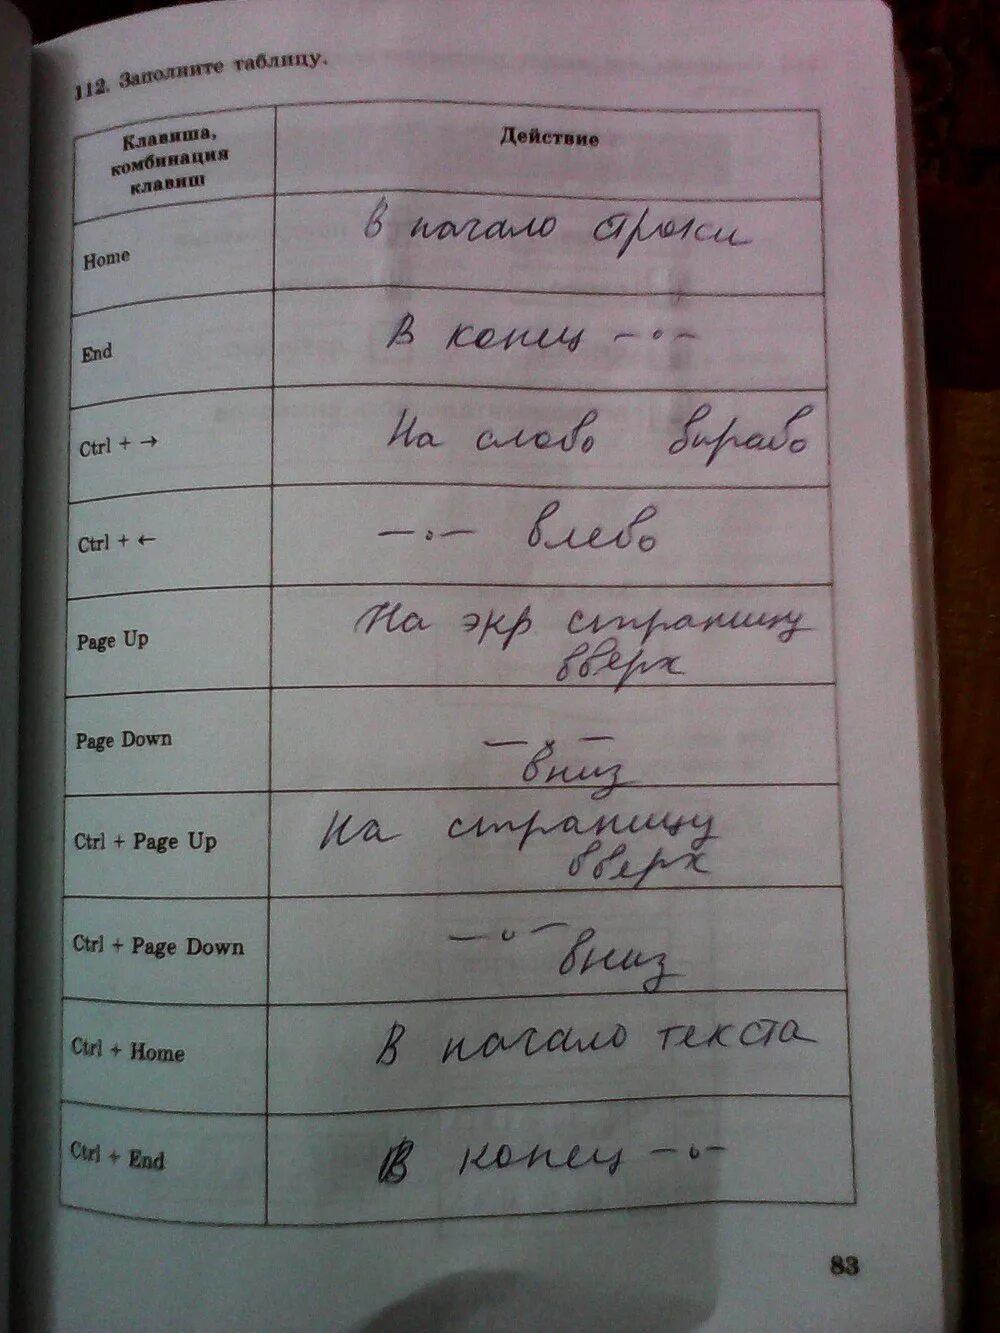 112. Заполните таблицу.
Клавиша,
комбинация
клавиш
Действие
Home
В начало строки
End
В конец –∘–
Ctrl + →
На слово вправо
Ctrl + ←
–∘– влево
Page Up
На экр страницу
вверх
Page Down
–∘–
вниз
Ctrl + Page Up
На страницу
вверх
Ctrl + Page Down
–∘–
вниз
Ctrl + Home
В начало текста
Ctrl + End
В конец –∘–
83